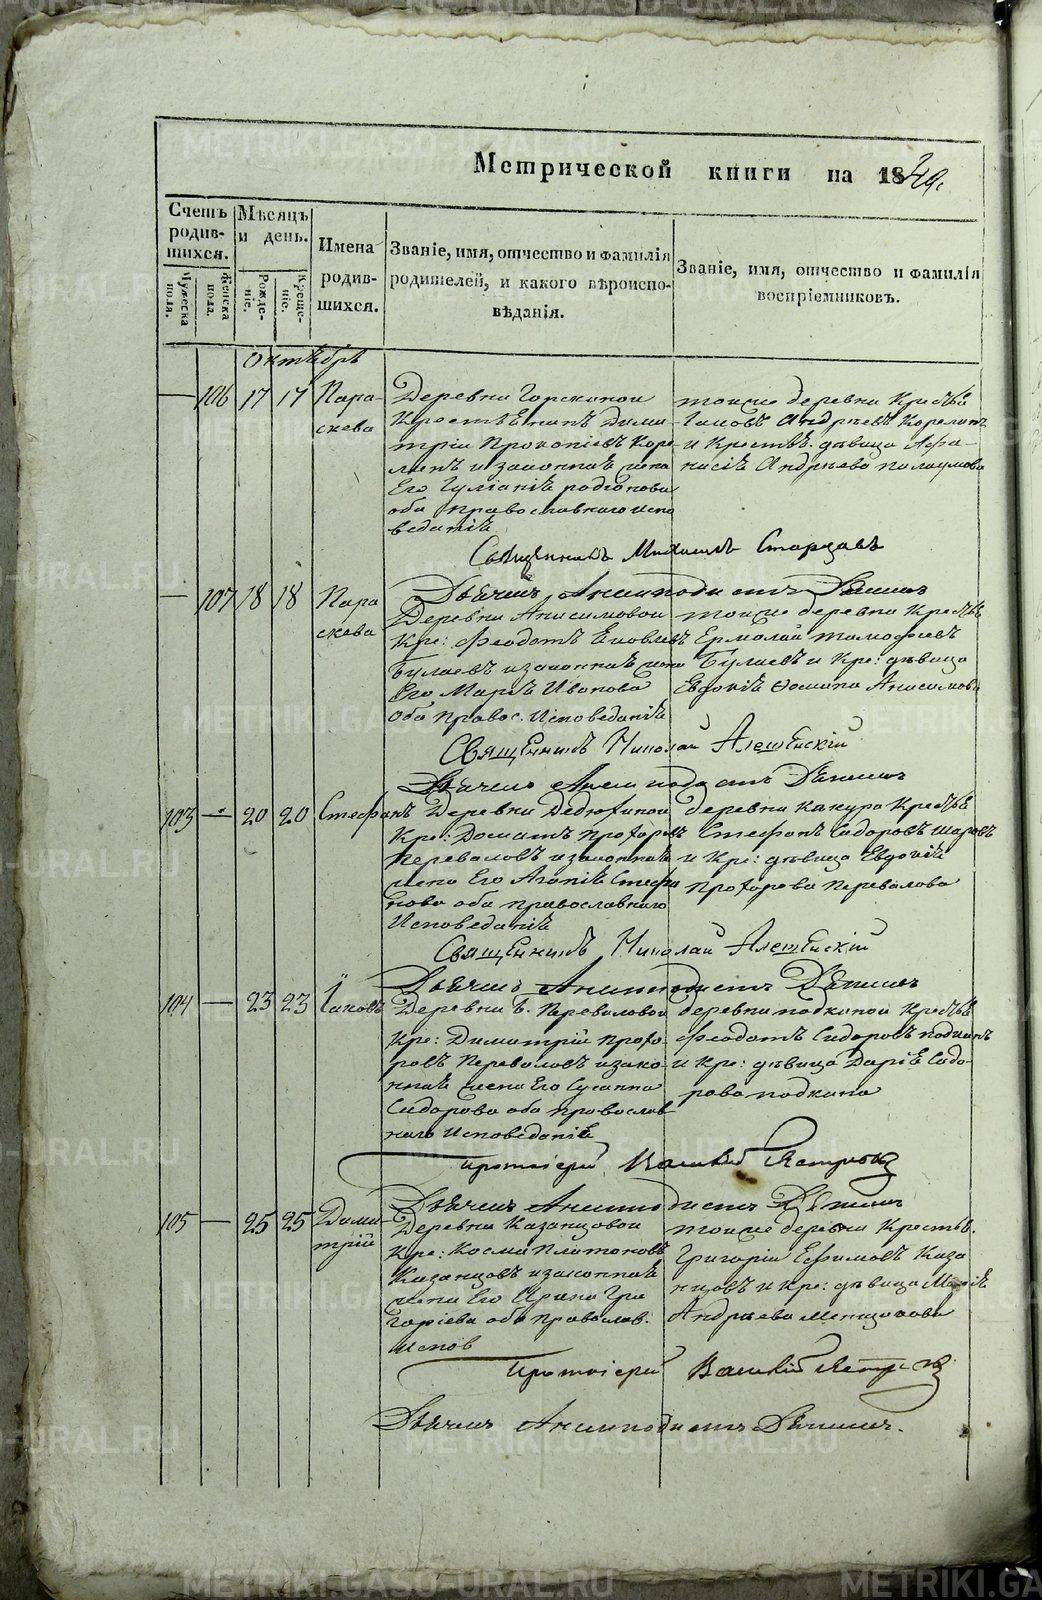 Метрической книги на 1840.
Счетъ родив-шихся.
Мужеска пола.
Женска пола.
Мѣсяцъ и день.
Рожде-ніе.
Креще-ніе.
Имена родив-шихся.
Званіе, имя, отчество и фамилія
родителей, и какого вѣроиспо-
вѣданія.
Званіе, имя, отчество и фамилія
воспріемниковъ.
Октябрь
— 106 17 17 Пара-
скева
Деревни
Крестьянинъ Дими-
трій Прокопіевъ Коре-
линъ и законная жена
Его Іуліанія Родіонова
оба православнаго испо
веданія
тоиже деревни Кресть
Іаковъ Андреевъ Корелинъ
и Крестья. дѣвица Афа-
насія Андреева
Священникъ Михаилъ Старцевъ
Дьячекъ Анемподистъ
— 107 18 18 Пара
скева
Деревни Анисимовой
Кре: Феодотъ Яковлевъ
Булаевъ и законная жена
Его Марія Иванова
Оба правос. Исповеданія
тоиже деревни Кресть
Ермолай Тимофеевъ
Булаевъ и Кре: дѣвица
Евдокія Фомина Анисимова
Священникъ Николай
Дьячекъ Анемподистъ
103 — 20 20 Стефанъ
Деревни Дедюхиной
Кре: Доматъ Прохоровъ
Переваловъ и законная
жена Его Агапія Стефа
нова оба православнаго
Исповеданія
деревни
Стефанъ Сидоровъ
и Кре: дѣвица Евдокія
Прохорова Перевалова
Священникъ Николай
Дьячекъ Анемподистъ
104 — 23 23 Іаковъ
Деревни Б. Переваловой
Кре: Димитрій Прохо-
ровъ Переваловъ и зако-
нная жена Его Сусанна
Сидорова оба православ
наго Исповеданія
деревни Подкиной Кресть
Феодотъ Сидоровъ Подкинъ
и Кре: дѣвица Дарія Сидо-
рова Подкина
протоіерей Василій
Дьячекъ Анемподистъ
105 — 25 25 Дими-
трій
Деревни Казанцовой
Кре: Косма Платоновъ
Казанцовъ и законная
жена Его Ирина Гри
горіева оба православ.
Испов
тоиже деревни Крестья.
Григорій Ефимовъ Каза
нцовъ и Кре: дѣвица Марія
Андреева
Протоіерей Василій
Дьячекъ Анемподистъ
METRIKI.GASO-URAL.RU